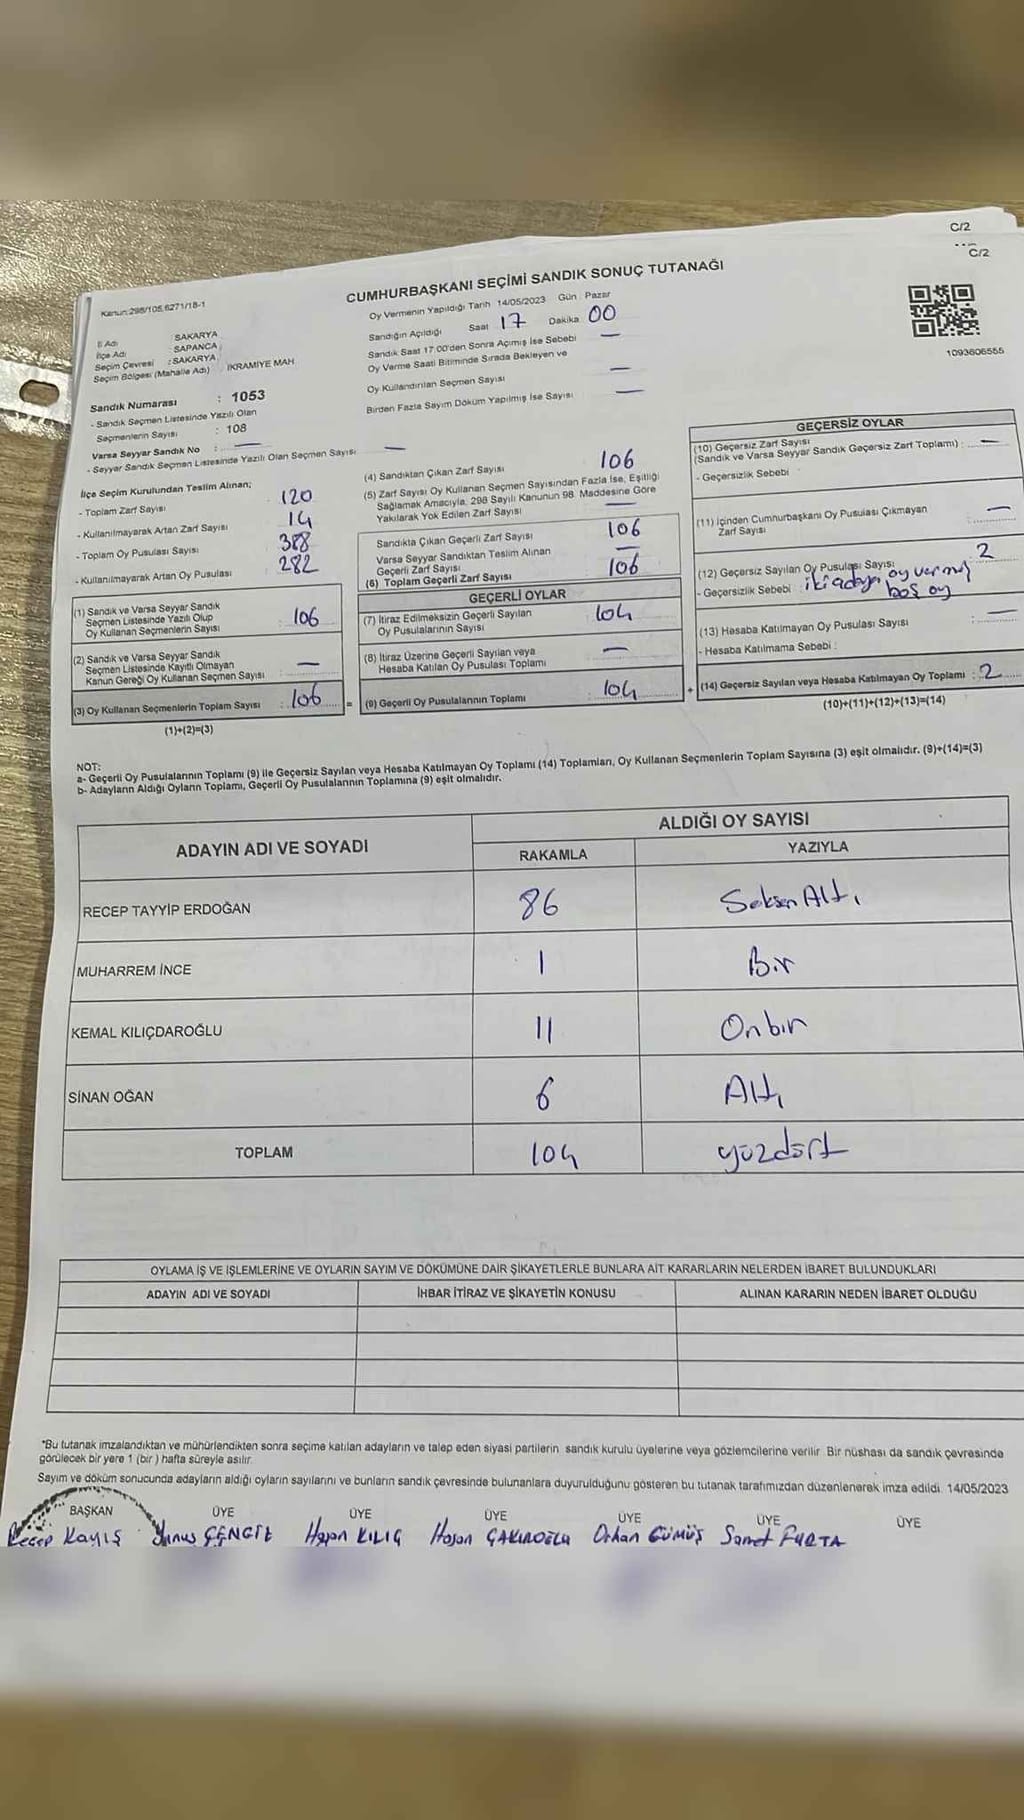 C/2
C/2
Kanun:298/105,6271/18-1
CUMHURBAŞKANI SEÇİMİ SANDIK SONUÇ TUTANAĞI
1093606555
İl Adı : SAKARYA
İlçe Adı : SAPANCA
Seçim Çevresi : SAKARYA
Seçim Bölgesi (Mahalle Adı) : İKRAMİYE MAH
Sandık Numarası : 1053
- Sandık Seçmen Listesinde Yazılı Olan
Seçmenlerin Sayısı : 108
Varsa Seyyar Sandık No : —
- Seyyar Sandık Seçmen Listesinde Yazılı Olan Seçmen Sayısı —
Oy Vermenin Yapıldığı Tarih 14/05/2023 Gün : Pazar
Sandığın Açıldığı Saat 17 Dakika 00
Sandık Saat 17:00'den Sonra Açımış İse Sebebi —
Oy Verme Saati Bitiminde Sırada Bekleyen ve
Oy Kullandırılan Seçmen Sayısı —
Birden Fazla Sayım Döküm Yapılmış İse Sayısı —
İlçe Seçim Kurulundan Teslim Alınan;
- Toplam Zarf Sayısı 120
- Kullanılmayarak Artan Zarf Sayısı 14
- Toplam Oy Pusulası Sayısı 388
- Kullanılmayarak Artan Oy Pusulası 282
(1) Sandık ve Varsa Seyyar Sandık
Seçmen Listesinde Yazılı Olup
Oy Kullanan Seçmenlerin Sayısı : 106
(2) Sandık ve Varsa Seyyar Sandık
Seçmen Listesinde Kayıtlı Olmayan
Kanun Gereği Oy Kullanan Seçmen Sayısı : —
(3) Oy Kullanan Seçmenlerin Toplam Sayısı : 106 =
(1)+(2)=(3)
(4) Sandıktan Çıkan Zarf Sayısı 106
(5) Zarf Sayısı Oy Kullanan Seçmen Sayısından Fazla İse, Eşitliği
Sağlamak Amacıyla, 298 Sayılı Kanunun 98. Maddesine Göre
Yakılarak Yok Edilen Zarf Sayısı —
Sandıkta Çıkan Geçerli Zarf Sayısı 106
Varsa Seyyar Sandıktan Teslim Alınan
Geçerli Zarf Sayısı —
(6) Toplam Geçerli Zarf Sayısı 106
GEÇERLİ OYLAR
(7) İtiraz Edilmeksizin Geçerli Sayılan
Oy Pusulalarının Sayısı 104
(8) İtiraz Üzerine Geçerli Sayılan veya
Hesaba Katılan Oy Pusulası Toplamı —
(9) Geçerli Oy Pusulalarının Toplamı 104 +
GEÇERSİZ OYLAR
(10) Geçersiz Zarf Sayısı
(Sandık ve Varsa Seyyar Sandık Geçersiz Zarf Toplamı) : —
- Geçersizlik Sebebi :
(11) İçinden Cumhurbaşkanı Oy Pusulası Çıkmayan
Zarf Sayısı : —
(12) Geçersiz Sayılan Oy Pusulası Sayısı 2
- Geçersizlik Sebebi : iki adaya oy vermiş
boş oy
(13) Hesaba Katılmayan Oy Pusulası Sayısı : —
- Hesaba Katılmama Sebebi :
(14) Geçersiz Sayılan veya Hesaba Katılmayan Oy Toplamı : 2
(10)+(11)+(12)+(13)=(14)
NOT:
a- Geçerli Oy Pusulalarının Toplamı (9) ile Geçersiz Sayılan veya Hesaba Katılmayan Oy Toplamı (14) Toplamları, Oy Kullanan Seçmenlerin Toplam Sayısına (3) eşit olmalıdır. (9)+(14)=(3)
b- Adayların Aldığı Oyların Toplamı, Geçerli Oy Pusulalarının Toplamına (9) eşit olmalıdır.
ADAYIN ADI VE SOYADI ALDIĞI OY SAYISI
RAKAMLA YAZIYLA
RECEP TAYYİP ERDOĞAN 86 Seksen Altı
MUHARREM İNCE 1 Bir
KEMAL KILIÇDAROĞLU 11 Onbir
SİNAN OĞAN 6 Altı
TOPLAM 104 yüzdört
OYLAMA İŞ VE İŞLEMLERİNE VE OYLARIN SAYIM VE DÖKÜMÜNE DAİR ŞİKAYETLERLE BUNLARA AİT KARARLARIN NELERDEN İBARET BULUNDUKLARI
ADAYIN ADI VE SOYADI İHBAR İTİRAZ VE ŞİKAYETİN KONUSU ALINAN KARARIN NEDEN İBARET OLDUĞU
*Bu tutanak imzalandıktan ve mühürlendikten sonra seçime katılan adayların ve talep eden siyasi partilerin sandık kurulu üyelerine veya gözlemcilerine verilir. Bir nüshası da sandık çevresinde
görülecek bir yere 1 (bir ) hafta süreyle asılır.
Sayım ve döküm sonucunda adayların aldığı oyların sayılarını ve bunların sandık çevresinde bulunanlara duyurulduğunu gösteren bu tutanak tarafımızdan düzenlenerek imza edildi. 14/05/2023
BAŞKAN ÜYE ÜYE ÜYE ÜYE ÜYE ÜYE
Recep Kayış Yunus ÇENGİZ Hasan KILIÇ Hasan ÇAKIROĞLU Orhan GÜMÜŞ Samet FURTA